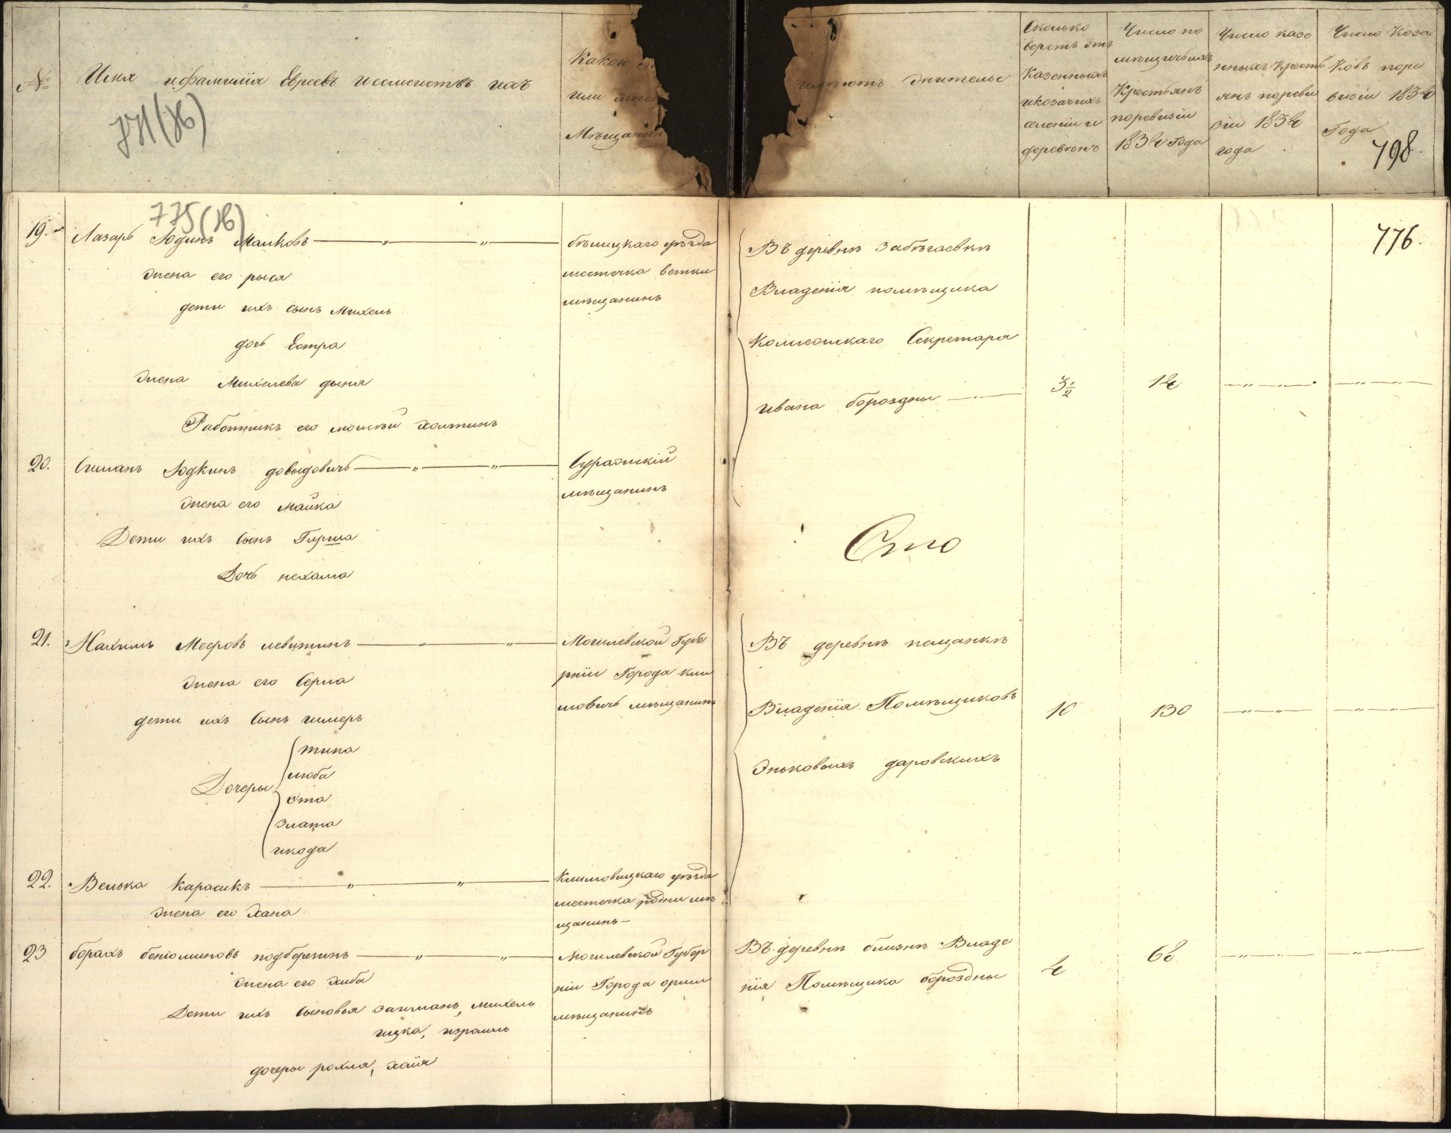 №
Имя и фамилія Евреевъ и семействъ ихъ
771 (об)
Какой
или
Мещанин
имеютъ жительс
Сколько
верстъ отъ
Казенныхъ
и козачихъ
селеніи и
деревень
Число по
мещичьихъ
Крестьянъ
поревизіи
1834 Года
Число казе
нныхъ Кресть
янъ пореви
зіи 1834
года
Число Коза
ковъ поре
визіи 1834
Года
798
775 (об)
776.
19. Лазарь Юдинъ Малковъ — „ — „ —
жена его рыся
дети ихъ Сынъ Михель
дочь Естра
Жена Михелева дыня
Работникъ его
белицкаго уезда
местечка ветки
мещанинъ
Въ деревне Забегаевке
Владенія помещика
Колежскаго Секретаря
Ивана бороздны
3 1/2
14
20. Юдкинъ довыдовичь — „ — „ —
жена его Майка
Дети ихъ Сынъ Гирша
Дочь нехама
Суражскій
мещанинъ
Сто
21. Нахимъ Мееровъ левитинъ — „ — „ —
жена его Серла
дети ихъ Сынъ гимеръ
Дочеры
тина
люба
ста
злата
икода
Могилевской Губе
рніи Города кли
мовичь мещанинъ
Въ деревне пещанке
Владенія Помещиковъ
10
130
22. Велька Карасикъ — „ — „ —
жена его Хана
Климовицкаго уезда
местечка родни ме
щанинъ —
23 борахъ беніоминовъ подберезинъ — „ — „ —
жена его Хиба
Дети ихъ Сыновья залманъ, михель
ицка, израиль
дочеры рохля, хаія
Могилевской Губер
ніи Города орши
мещанинъ
Въ деревне Владе
нія Помещика бороздны
4
68